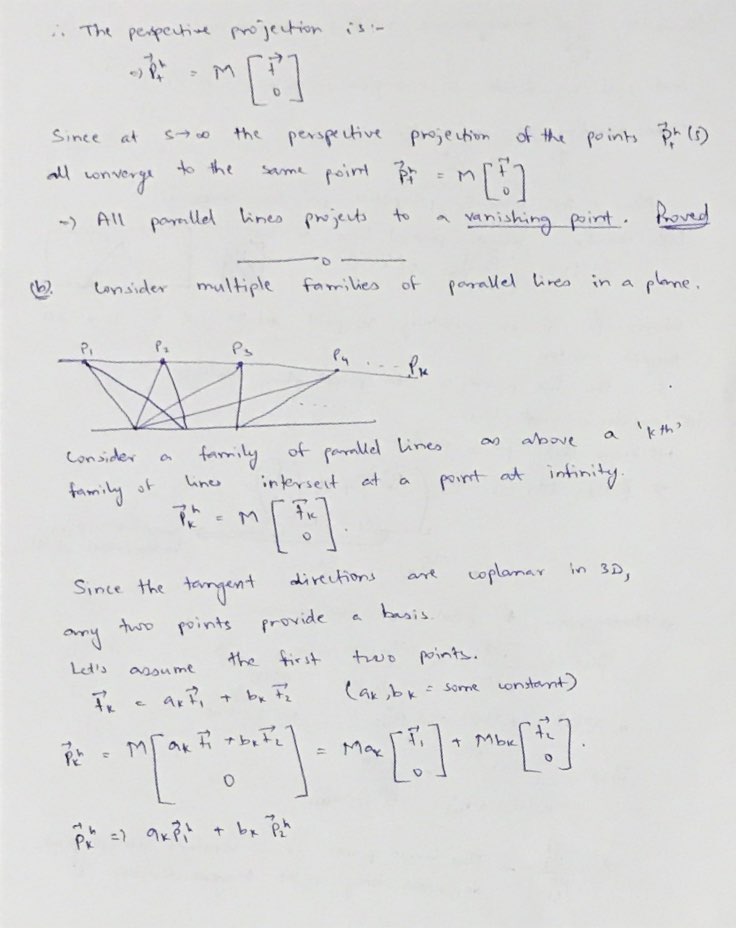 ∴ The perspective projection is:-
⇒ P⃗ₜʰ = M [t⃗ 0]
Since at s→∞ the perspective projection of the points P⃗ₜʰ(s)
all converge to the same point P⃗ₜʰ = M [t⃗ 0]
⇒ All parallel lines projects to a vanishing point. Proved
(b). Consider multiple families of parallel lines in a plane.
P₁ P₂ P₃ P₄ .... Pₖ
...
Consider a family of parallel lines as above a 'kth'
family of lines intersect at a point at infinity.
P⃗ₖʰ = M [t⃗ₖ 0].
Since the tangent directions are coplanar in 3D,
any two points provide a basis.
Let's assume the first two points.
t⃗ₖ = aₖt⃗₁ + bₖt⃗₂ (aₖ, bₖ = some constant)
P⃗ₖʰ = M [aₖt⃗₁ + bₖt⃗₂ 0] = Maₖ [t⃗₁ 0] + Mbₖ [t⃗₂ 0].
P⃗ₖʰ ⇒ aₖP⃗₁ʰ + bₖP⃗₂ʰ